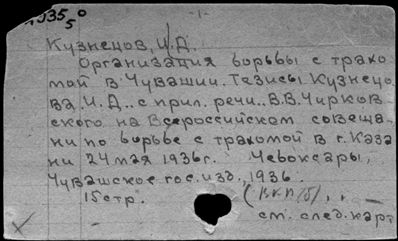 19355
-1-
Кузнецов, И.Д.
Организация борьбы с трахо-
мой в Чувашии. Тезисы Кузнецо-
ва, И.Д.. с прил. речи.. В.В. Чирков-
ского на Всероссийском совеща-
нии по борьбе с трахомой в г. Каза
ни 24 мая 1936г. Чебоксары,
Чувашское гос. изд., 1936.
15 стр. (ВКП(б),
см. след. карт